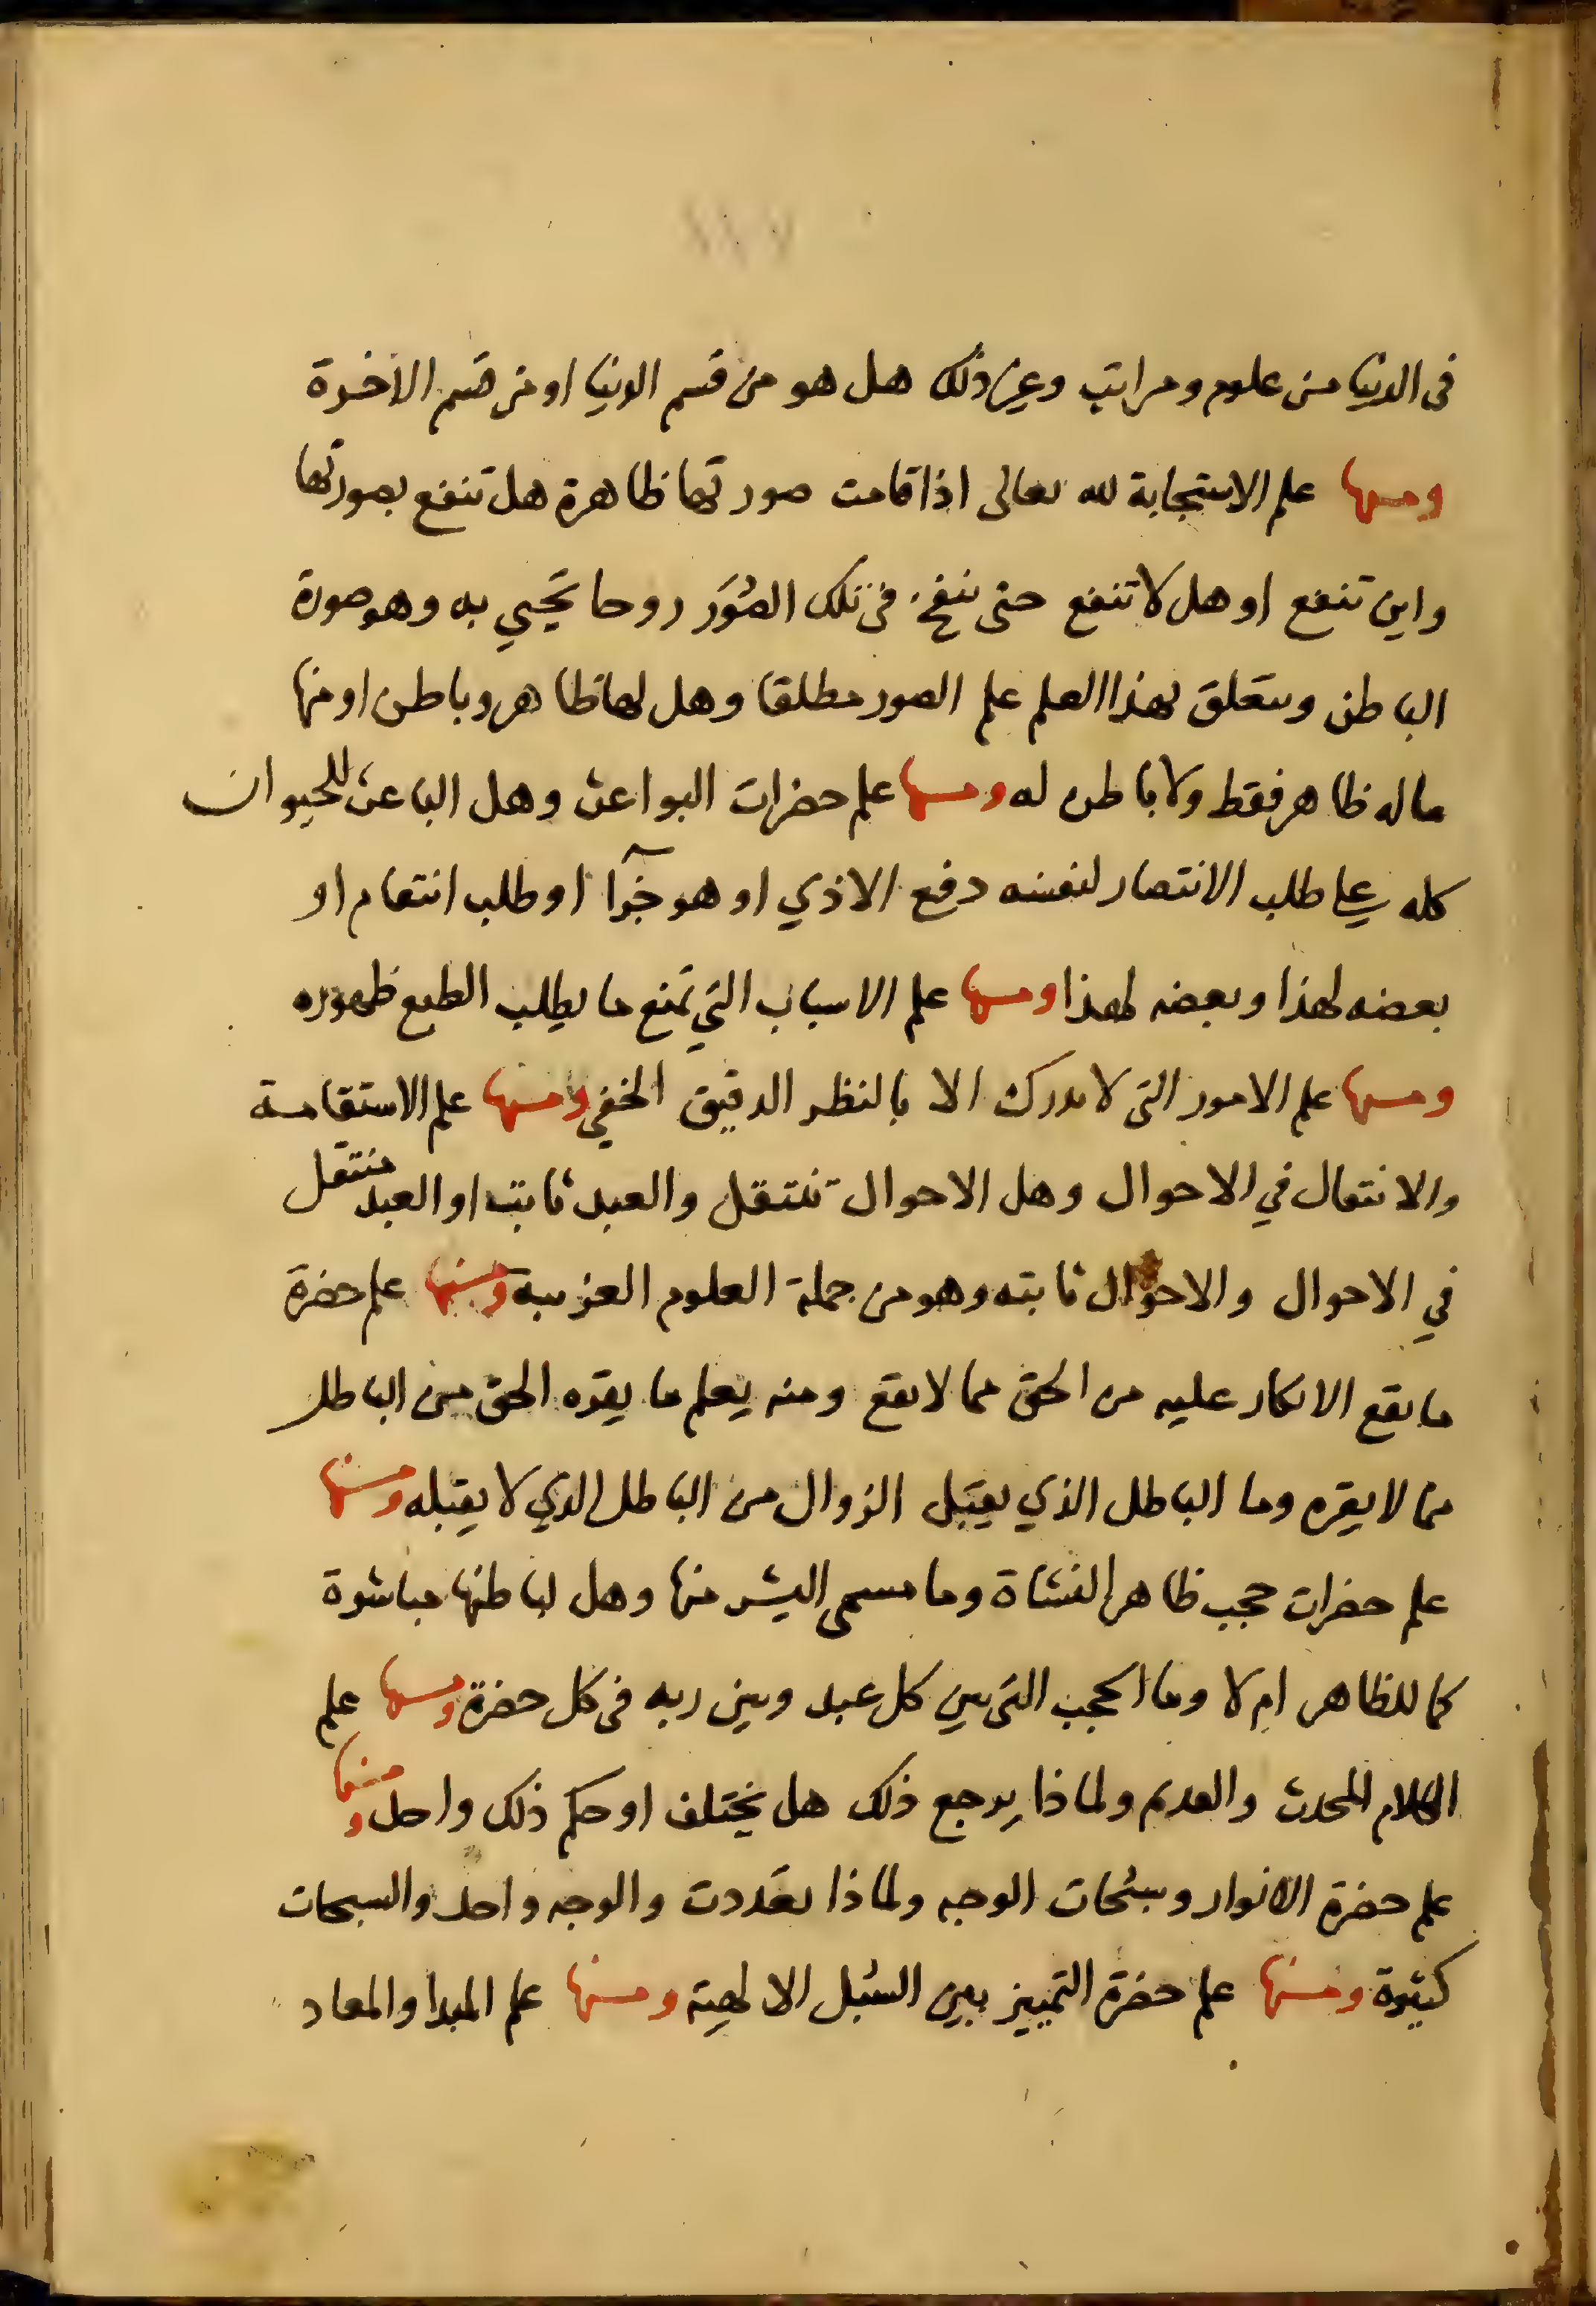 في الدنيا من علوم ومراتب وغير ذلك هل هو من قسم الدنيا او من قسم الاخرة
ومنها علم الاستجابة لله تعالى اذا قامت صورتها ظاهرة هل تنفع بصورتها
واين تنفع او هل لا تنفع حتى ينفخ في تلك الصُوَر روحا تحيي به وهو صورة
الباطن ويتعلق بهذا العلم علم الصور مطلقا وهل لها ظاهر وباطن او منها
ما له ظاهر فقط ولا باطن له ومنها علم حضرات البواعث وهل الباعث للحيوان
كله على طلب الانتصار لنفسه دفع الاذي او هو جزآ او طلب انتقام او
بعضه لهذا وبعضه لهذا ومنها علم الاسباب التي تمنع ما يطلب الطبع ظهوره
ومنها علم الامور التي لا تدرك الا بالنظر الدقيق الخفي ومنها علم الاستقامة
والانتقال في الاحوال وهل الاحوال تنتقل والعبد ثابت او العبد منتقل
في الاحوال والاحوال ثابته وهو من جملة العلوم الغريبة ومنها علم حضرة
ما يقع الانكار عليه من الحق مما لا يقع ومنه يعلم ما يقره الحق من الباطل
مما لا يقره وما الباطل الذي يقبل الزوال من الباطل الذي لا يقبله ومنها
علم حضرات حجب ظاهر النشاة وما مسمى البشر منها وهل لباطنها مباشرة
كما للظاهر ام لا وما الحجب التي بين كل عبد وبين ربه في كل حضرة ومنها علم
الكلام المحدث والقديم ولماذا يرجع ذلك هل يختلف او حكم ذلك واحد ومنها
علم حضرة الانوار وسبُحات الوجه ولماذا تعددت والوجه واحد والسبحات
كثيرة ومنها علم حضرة التمييز بين السُبل الالهية ومنها علم المبدا والمعاد